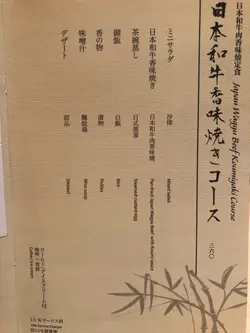 日本和牛肉香味燒定食
Japan Wagyu Beef Koumiyaki Course
日本和牛香味焼きコース
三六〇
ミニサラダ
沙律
Mixed salad
日本和牛香味焼き
日本和牛肉香味燒
Pan-fried Japan Wagyu Beef with Koumi sauce
茶碗蒸し
日式蒸蛋
Steamed custard egg
御飯
白飯
Rice
香の物
漬物
Pickles
味噌汁
麵豉湯
Miso soup
デザート
甜品
Dessert
コーヒー・アイスクリーム付
咖啡、雪糕
Coffee, Ice cream
10％サービス料
10% Service Charge
加10%服務費